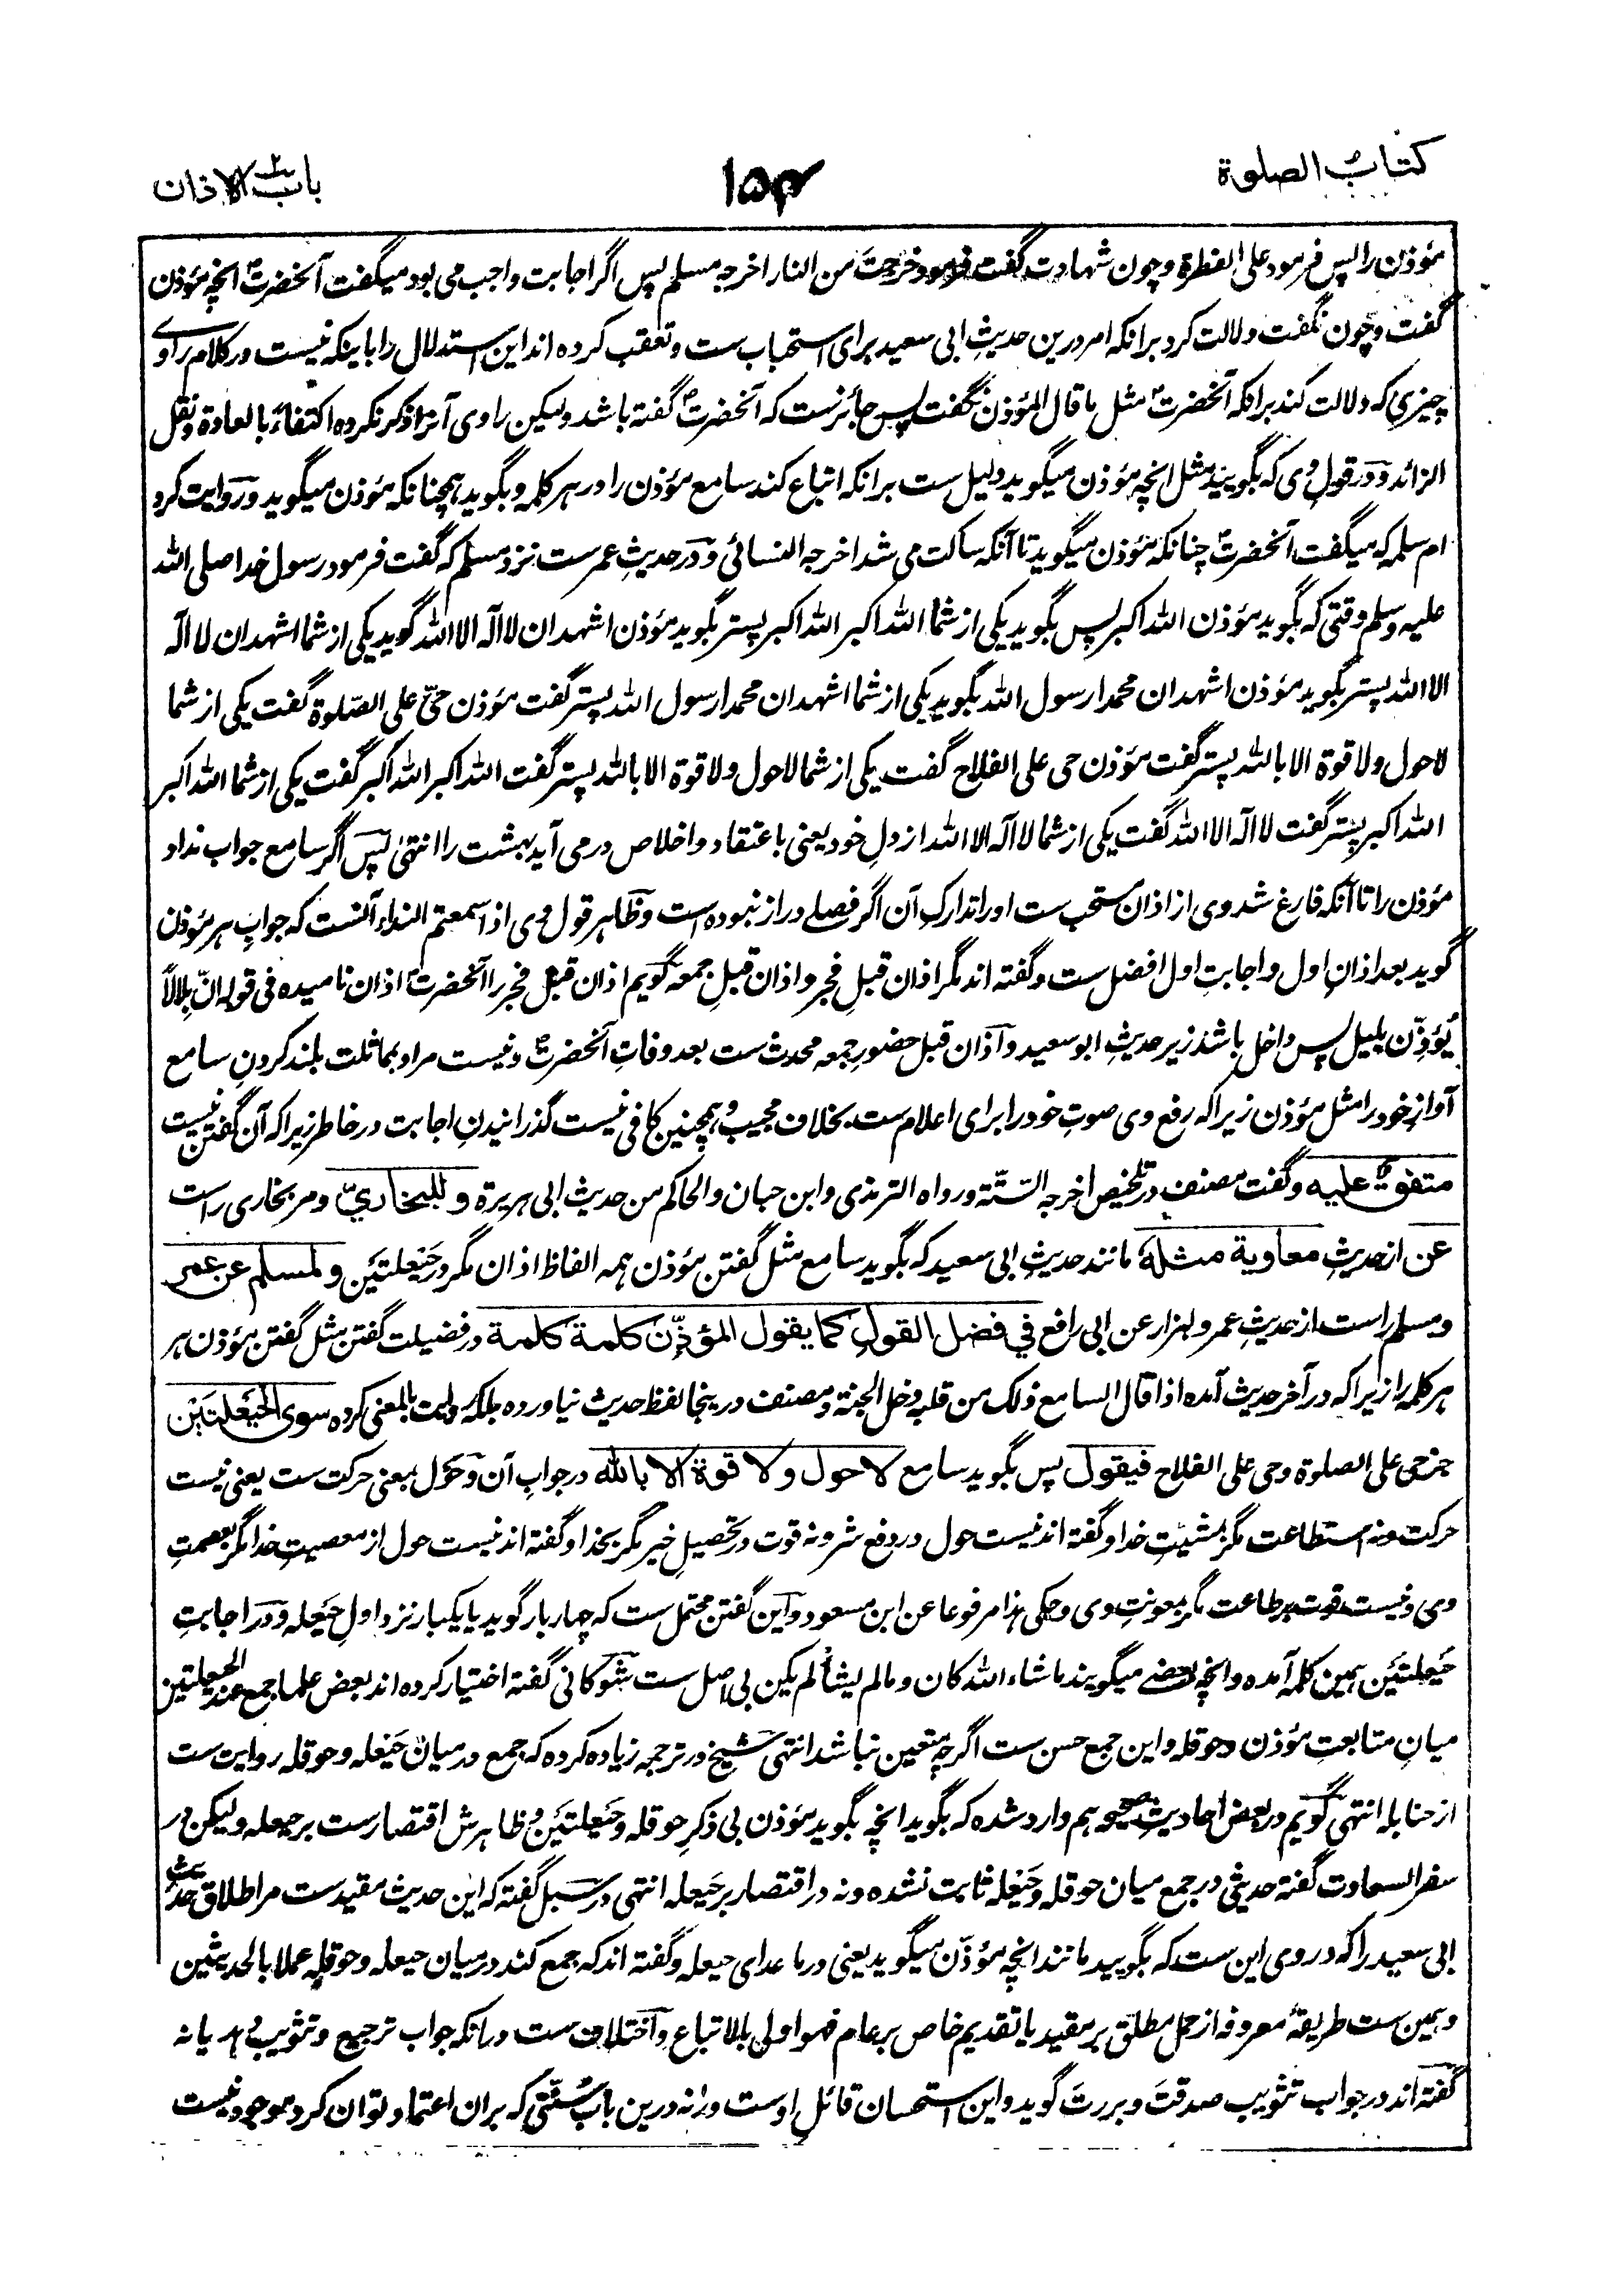 کتاب الصلوة
۱۵۴
باب الاذان
مؤذن را پس فرمود علی الفطرة و چون شهادت گفت فرمود خرجتَ من النار اخرجه مسلم پس اگر اجابت واجب می بود میگفت آنحضرت انچه مؤذن
گفت و چون نگفت دلالت کرد برانکه امر درین حدیثِ ابی سعید برای استحباب ست و تعقب کرده اند این استدلال را باینکه نیست در کلام راوے
چیزی که دلالت کند برانکه آنحضرت مثل ما قال المؤذن نگفت پس جائزست که آنحضرت گفته باشد ولیکن راوی آنرا ذکر نکرده اکتفاءً بالعادة و نقل
الزائد و در قولِ وی که بگویید مثل انچه مؤذن میگوید دلیل ست برانکه اتباع کند سامع مؤذن را در هر کلمه و بگوید همچنانکه مؤذن میگوید و روایت کرد
ام سلمه که میگفت آنحضرت چنانکه مؤذن میگوید تا آنکه ساکت می شد اخرجه النسائی و در حدیثِ عمرست نزد مسلم که گفت فرمود رسول خدا صلی الله
علیه وسلم وقتی که بگوید مؤذن الله اکبر پس بگوید یکی از شما الله اکبر الله اکبر پستر بگوید مؤذن اشهد ان لا اله الا الله گوید یکی از شما اشهد ان لا اله
الا الله پستر بگوید مؤذن اشهد ان محمدا رسول الله بگوید یکی از شما اشهد ان محمدا رسول الله پستر گفت مؤذن حیّ علی الصّلوة گفت یکی از شما
لا حول ولا قوة الا بالله پستر گفت مؤذن حی علی الفلاح گفت یکی از شما لا حول ولا قوة الا بالله پستر گفت الله اکبر الله اکبر گفت یکی از شما الله اکبر
الله اکبر پستر گفت لا اله الا الله گفت یکی از شما لا اله الا الله از دلِ خود یعنی با عتقاد و اخلاص در می آید بهشت را انتهیٰ پس اگر سامع جواب نداد
مؤذن را تا آنکه فارغ شد وی از اذان مستحب ست او را تدارکِ آن اگر فصلے دراز نبوده است و ظاهر قول وی اذا سمعتم النداء آنست که جوابِ هر مؤذن
گوید بعد اذانِ اول و اجابتِ اول افضل ست و گفته اند مگر اذان قبلِ فجر و اذان قبلِ جمعه گویم اذان قبل فجر را آنحضرت اذان نامیده فی قوله انّ بلالاً
یُؤذِّن بلیل پس داخل باشد زیر حدیثِ ابو سعید و آذان قبل حضورِ جمعه محدث ست بعد وفاتِ آنحضرت و نیست مراد بمماثلت بلند کردنِ سامع
آوازِ خود را مثل مؤذن زیراکه رفع وی صوتِ خود را برای اعلام ست بخلاف مجیب و همچنین کافی نیست گذرانیدنِ اجابت در خاطر زیراکه آن گفتن نیست
متفق علیه و گفت مصنف در تلخیص اخرجه الستّة و رواه الترمذی و ابن حبان والحاکم من حدیث ابی هریرة وللبخاریّ و مر بخاری راست
عن از حدیثِ معاویة مثله مانند حدیثِ ابی سعید که بگوید سامع مثل گفتنِ مؤذن همه الفاظ اذان مگر در حَیْعلتَین ولمسلم عن عمر
و مسلم راست از حدیثِ عمر و لبزار عن ابی رافع فی فضل القولِ کما یقول المؤذّن کلمة کلمة در فضیلت گفتن مثل گفتن مؤذن هر
هر کلمه را زیراکه در آخر حدیث آمده اذا قال السامع ذلک من قلبه دخل الجنة و مصنف درینجا لفظ حدیث نیاورده بلکه روایت بالمعنی کرده سوی الحَیعَلتَین
جز حی علی الصلوة وحی علی الفلاح فیقول پس بگوید سامع لا حول ولا قوة الا بالله در جوابِ آن و حَوْل بمعنی حرکت ست یعنی نیست
حرکت و نه استطاعت مگر بمشیّتِ خدا و گفته اند نیست حول در دفع شر و نه قوت در تحصیلِ خیر مگر بخدا و گفته اند نیست حول از معصیتِ خدا مگر بعصمتِ
وی و نیست قوت بر طاعت مگر بمعونتِ وی و حکی هذا مرفوعا عن ابن مسعود و این گفتن محتمل ست که چهار بار گوید یا یکبار نزد اولِ حَیعله و در اجابتِ
حَیعلتَین همین کلمه آمده و انچه بعضے میگویند ما شاء الله کان و ما لم یشأ لم یکن بی اصل ست شوکانی گفته اختیار کرده اند بعض علما جمع عند الحیعلتین
میانِ متابعتِ مؤذن و حوقله و این جمع حسن ست اگرچه متعین نباشد انتهی شیخ در ترجمه زیاده کرده که جمع درمیان حَیْعله و حوقله روایت ست
از حنابله انتهی گویم در بعض احادیثِ صحیحه هم وارد شده که بگوید انچه بگوید مؤذن بی ذکرِ حوقله و حَیعلتَین و ظاهرش اقتصارست بر حیعله ولیکن در
سفر السعادت گفته حدیثی در جمع میان حوقله و حَیْعله ثابت نشده و نه در اقتصار بر حَیعله انتهی در سبل گفته که این حدیث مقیدست مر اطلاق حدیث
ابی سعید را که در وی این ست که بگویید مانند انچه مؤذّن میگوید یعنی در ما عدای حیعله و گفته اند که جمع کند درمیان حیعله و حوقله عملا بالحدیثین
و همین ست طریقهٔ معروفه از حمل مطلق بر مقید یا تقدیم خاص بر عام فهو اولی بالاتباع و اختلاف ست در انکه جواب ترجیع و تثویب دهد یا نه
گفته اند در جواب تثویب صدقتَ و بررتَ گوید و این استحسان قائلِ اوست ورنه درین باب سنّتی که بران اعتماد توان کرد موجود نیست